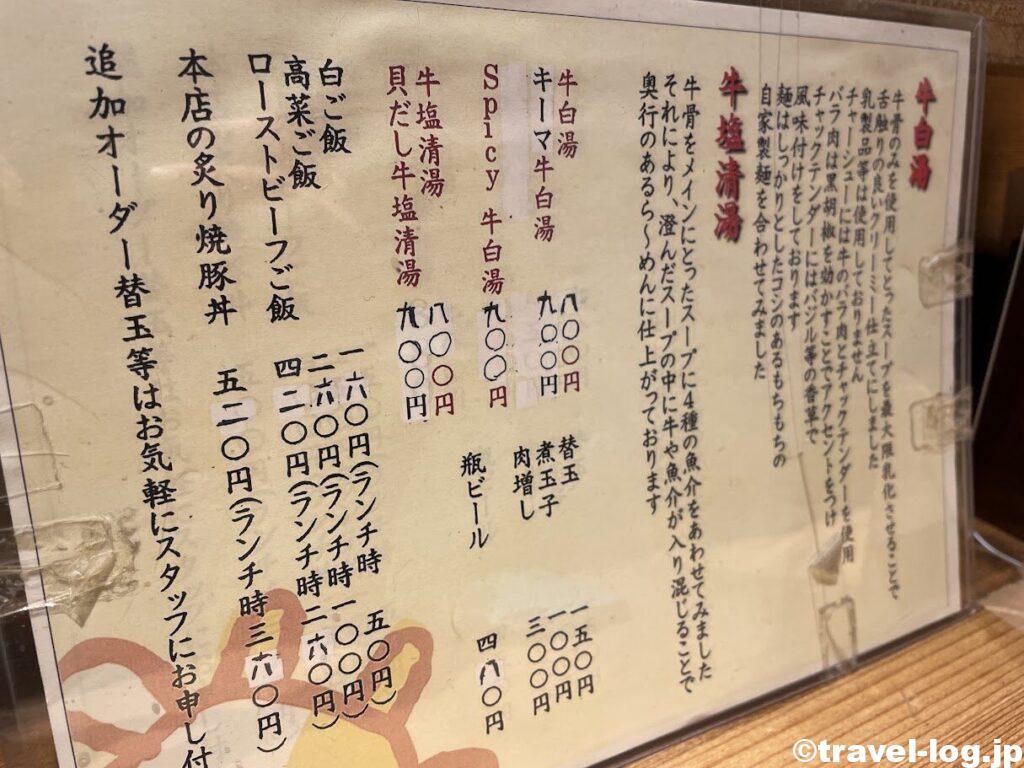 牛白湯
牛骨のみを使用してとったスープを最大限乳化させることで
舌触りの良いクリーミー仕立てにしました
乳製品等は使用しておりません
チャーシューには牛のバラ肉とチャックテンダーを使用
バラ肉は黒胡椒を効かすことでアクセントをつけ
チャックテンダーにはバジル等の香草で
風味付けをしております
麺はしっかりとしたコシのあるもちもちの
自家製麺を合わせてみました
牛塩清湯
牛骨をメインにとったスープに4種の魚介をあわせてみました
それにより、澄んだスープの中に牛や魚介が入り混じることで
奥行のあるら～めんに仕上がっております
牛白湯 八〇〇円
キーマ牛白湯 九〇〇円
Spicy 牛白湯 九〇〇円
牛塩清湯 八〇〇円
貝だし牛塩清湯 九〇〇円
替玉 一五〇円
煮玉子 一〇〇円
肉増し 三〇〇円
瓶ビール 四八〇円
白ご飯 一六〇円(ランチ時 五〇円)
高菜ご飯 二六〇円(ランチ時 一〇〇円)
ローストビーフご飯 四二〇円(ランチ時二六〇円)
本店の炙り焼豚丼 五二〇円(ランチ時三六〇円)
追加オーダー替玉等はお気軽にスタッフにお申し付
©travel-log.jp